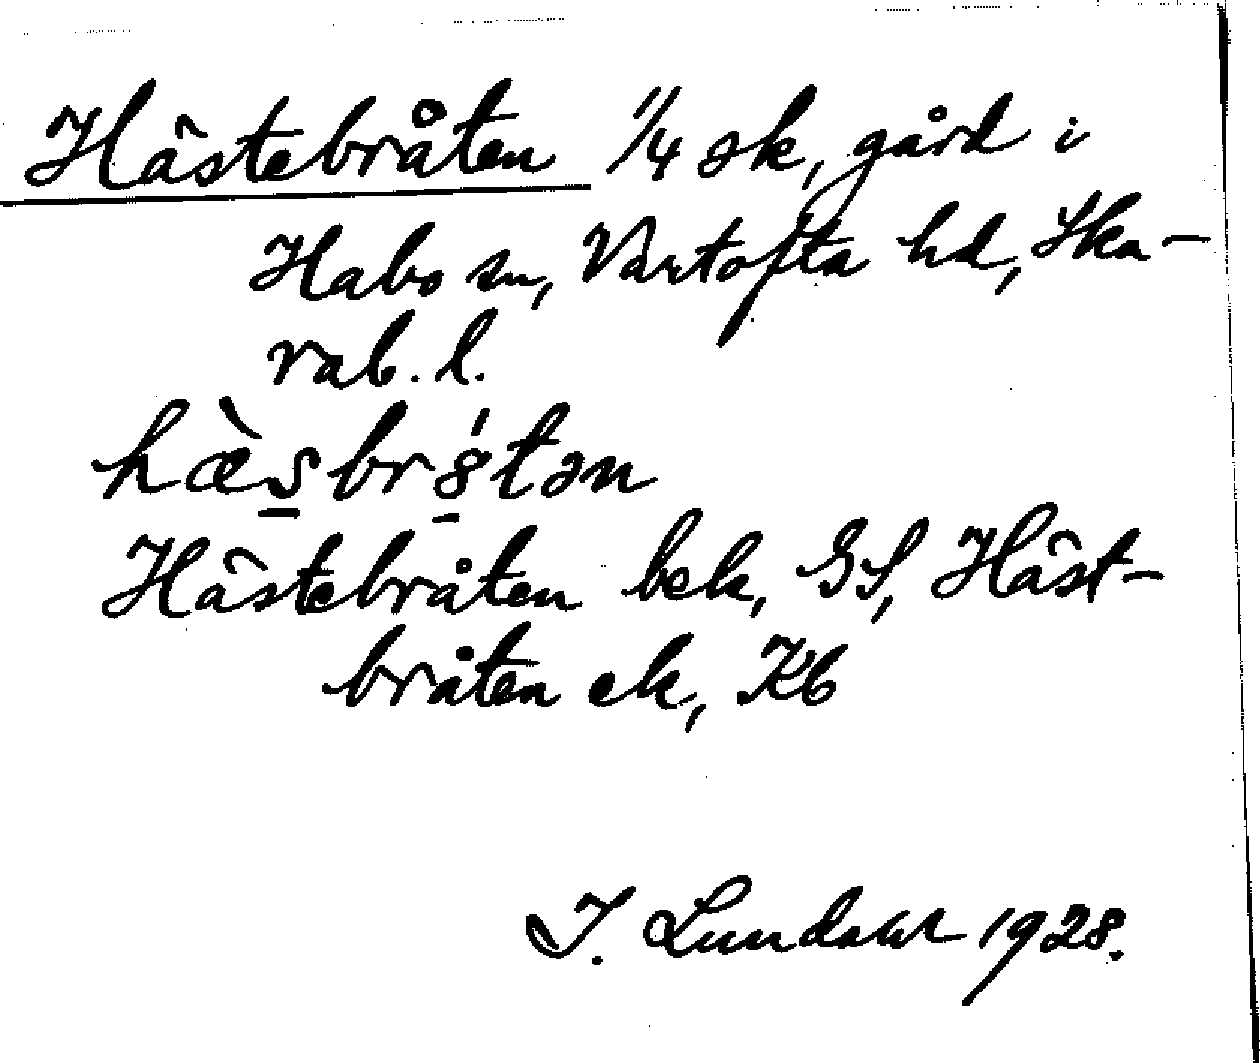 Hästebråten 1/4 sk, gård i
Habo sn, Vartofta hd, Ska-
rab. l.
hæ̀s̠br8̠́tən
Hästebråten bek, GS, Häst-
bråten ek, Kb
I. Lundahl 1928.